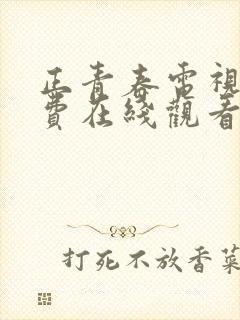 正青春電視
費在綫觀看
打死不放香菜